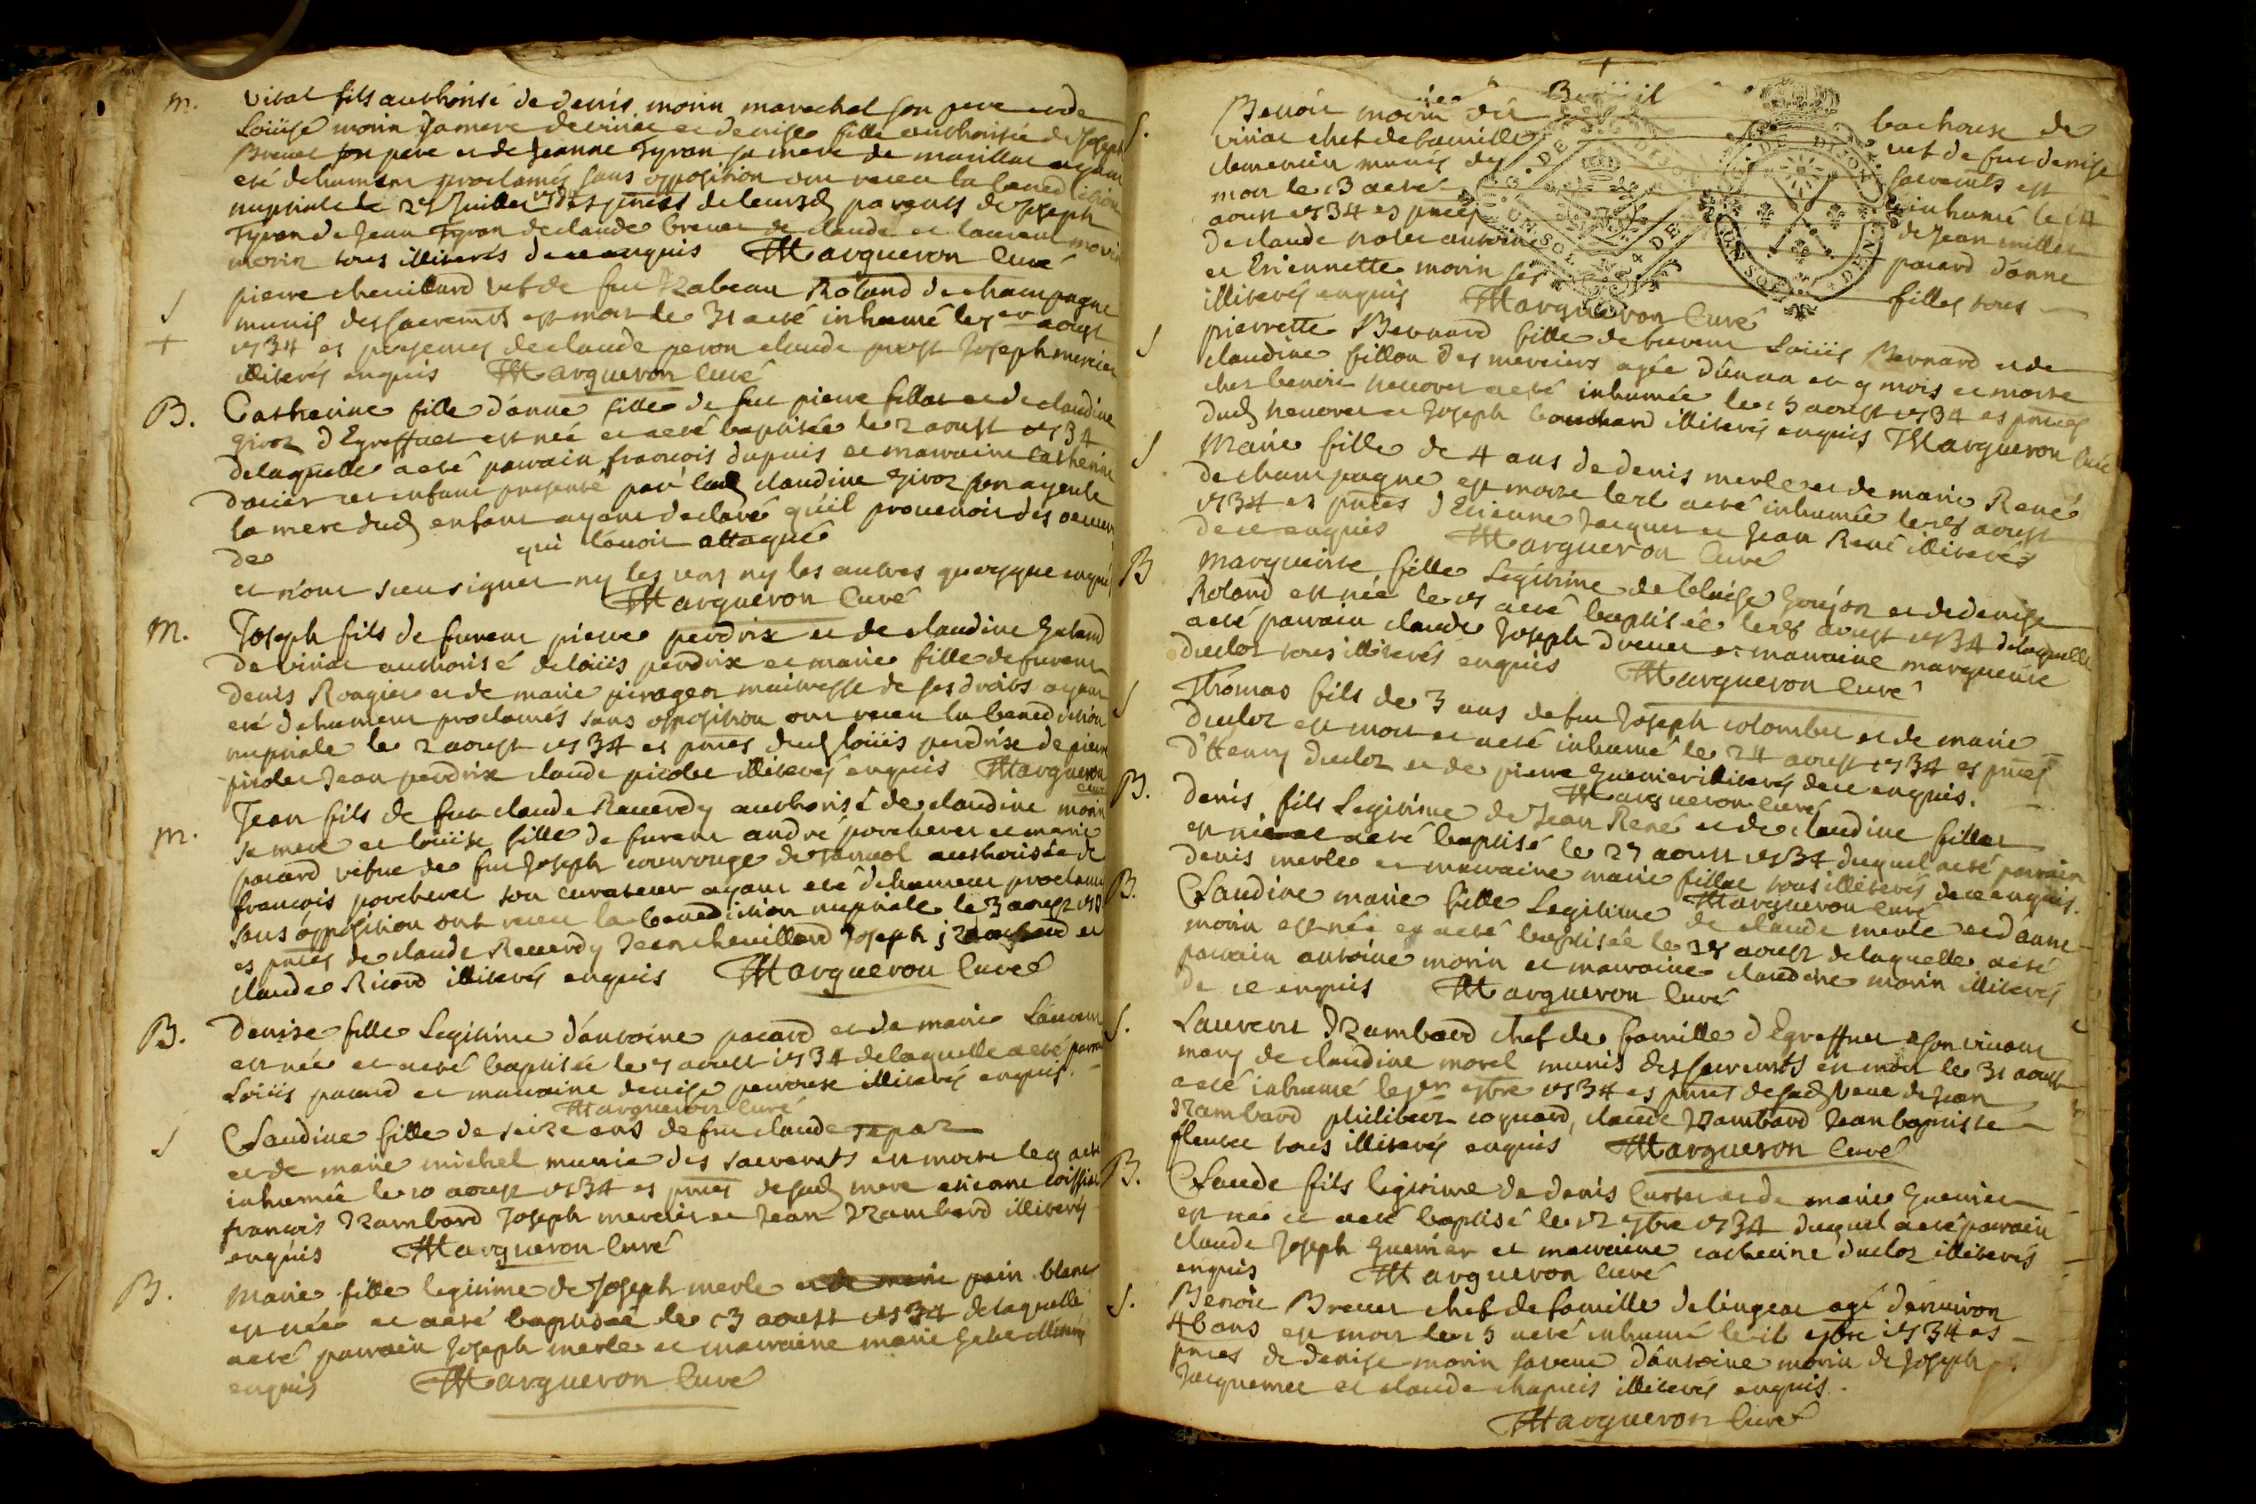 m. vital fils authorisé de denis morin marechal son pere et de
Loüise morin sa mere de viriac et denise fille authorisée de Joseph
Brevet son pere et de Jeanne Tyron sa mere de marillac ayant
eté dehument proclamés sans opposition ont receu la benediction
nuptiale le 27 Juillet 1734 es pnces de leursd parents de Joseph
Tyron de Jean Tyron de claude brevet de claude et laurent morin
morin tous illiterés de ce enquis Margueron Curé
S pierre chevillard vef de fue Izabeau Roland de champagne
+ munis des sacremts est mort le 31 a eté inhumé le 1er aoust
1734 es presences de claude peron claude prost Joseph mercier
illiterés enquis Margueron Curé
B. Catherine fille d'anne fille de fut pierre fillot et de claudine
givor d'Egreffuet est née et a eté baptisée le 2 aoust 1734
de laquelle a eté parrain francois dupuis et marraine Catherine
dacier cet enfant presenté par lad claudine givor son ayeule
la mere dud enfant ayant declaré qu'il provenoit des oeuvres
de
qui l'avoit attaqué
et n'ont sceu signer ny les uns ny les autres quoyque enquis
Margueron Curé
m. Joseph fils de furent pierre perdrix et de claudine galand
de viriac authorisé de loüis perdrix et marie fille de furent
denis Rougier et de marie maitresse de ses droits ayant
eté dehument proclamés sans opposition ont receu la benediction
nuptiale le 2 aoust 1734 es pnces dud loüis perdrix de pierre
picolet Jean perdrix claude picolet illiterés enquis Margueron
curé
m. Jean fils de fut claude Reverdy authorisé de claudine morin
sa mere et loüise fille de furent andré porcheret et marie
pacard vefue de fut Joseph couvrouge de authorisée de
francois porcheret son curateur ayant eté dehument proclamés
sans opposition ont receu la benediction nuptiale le 3 aoust 1734
es pnces de claude Reverdy Jean chevillard Joseph et
claude Ricard illiterés enquis Margueron Curé
B. Denise fille Legitime d'antoine pacard et de marie Laurent
est née et a eté baptisée le 7 aoust 1734 de laquelle a eté parrain
Loüis pacard et marraine denise illiterés enquis.
Margueron Curé
S Claudine fille de seize ans de fut claude repar
et de marie michel munie des sacremts est morte le 9 a eté
inhumée le 10 aoust 1734 es pnces de sad mere etienne
francois Izambard Joseph mercier et Jean Izambard illiterés
enquis Margueron Curé
B. Marie fille legitime de Joseph merle pain blanc
est née et a eté baptisée le 13 aoust 1734 de laquelle
a eté parrain Joseph merle et marraine marie illiterés
enquis Margueron Curé
S. Benoit morin dit bachouse de
viriac chef de famille vef de fue denise
munis des sacremts est
mort le 13 a eté inhumé le 14
aoust 1734 es pnces de Jean millet
de claude nolet antoine pacard d'anne
et Etiennette morin ses filles tous
illiterés enquis Margueron Curé
S pierrette Bernard fille de furent Loüis Bernard et de
claudine fillon des merciers agée d'un an et 9 mois et morte
chez benoit a eté inhumée le 15 aoust 1734 es pnces
dud et Joseph bouchard illiterés enquis Margueron Curé
S Marie fille de 4 ans de denis merle et de marie René
de champagne est morte le a eté inhumée le 18 aoust
1734 es pnces d'Etienne Jacquet et Jean René illiterés
de ce enquis Margueron Curé
B Marguerite fille Legitime de blaise goujon et de denise
Roland est née le 17 a eté baptisée le 18 aoust 1734 de laquelle
a eté parrain claude Joseph brevet et marraine marguerite
duclos tous illiterés enquis Margueron Curé
S Thomas fils de 3 ans de fut Joseph colombet et de marie
duclos est mort et a eté inhumé le 24 aoust 1734 es pnces
d'Henry duclos et de pierre guerrier illiterés de ce enquis.
Margueron Curé
B. Denis fils Legitime de Jean René et de claudine fillot
est né et a eté baptisé le 27 aoust 1734 duquel a eté parrain
denis merle et marraine marie fillot tous illiterés de ce enquis.
Margueron Curé
B. Claudine marie fille Legitime de claude merle et d'anne
morin est née et a eté baptisée le aoust de laquelle a eté
parrain antoine morin et marraine claudine morin illiterés
de ce enquis Margueron Curé
S. Laurent Izambard chef de famille d'Egreffuet a son vivant
mary de claudine morel munis des sacremts est mort le 31 aoust
a eté inhumé le 1er 7bre 1734 es pnces de sad veue de Jean
Izambard philibert coquard, claude Izambard Jean baptiste
tous illiterés enquis Margueron Curé
B. Claude fils legitime de denis et de marie guerrier
est né et a eté baptisé le 12 7bre 1734 duquel a eté parrain
claude Joseph guerrier et marraine catherine duclos illiterés
enquis Margueron Curé
S. Benoit Brevet chef de famille de lingeac agé d'environ
46 ans est mort le 15 a eté inhumé le 16 7bre 1734 es
pnces de denise morin sa veue d'antoine morin de Joseph
Jacquemet et claude chapuis illiterés enquis.
Margueron Curé